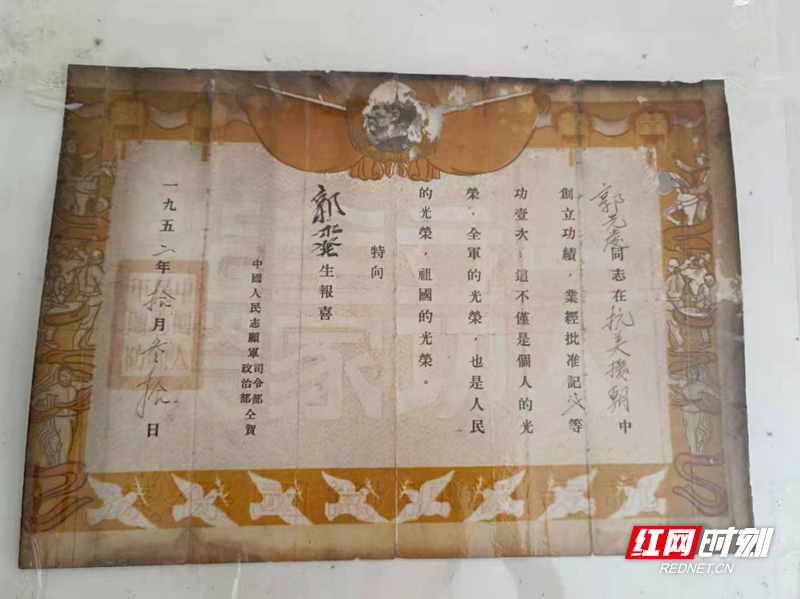 郭光慶同志在抗美援朝中
創立功績,業經批准記 等
功壹次;這不僅是個人的光
榮,全軍的光榮,也是人民
的光榮,祖國的光榮。
特向
郭 生報喜
中國人民志願軍司令部政治部仝賀
一九五二年拾月叁拾日
红网时刻
REDNET.CN